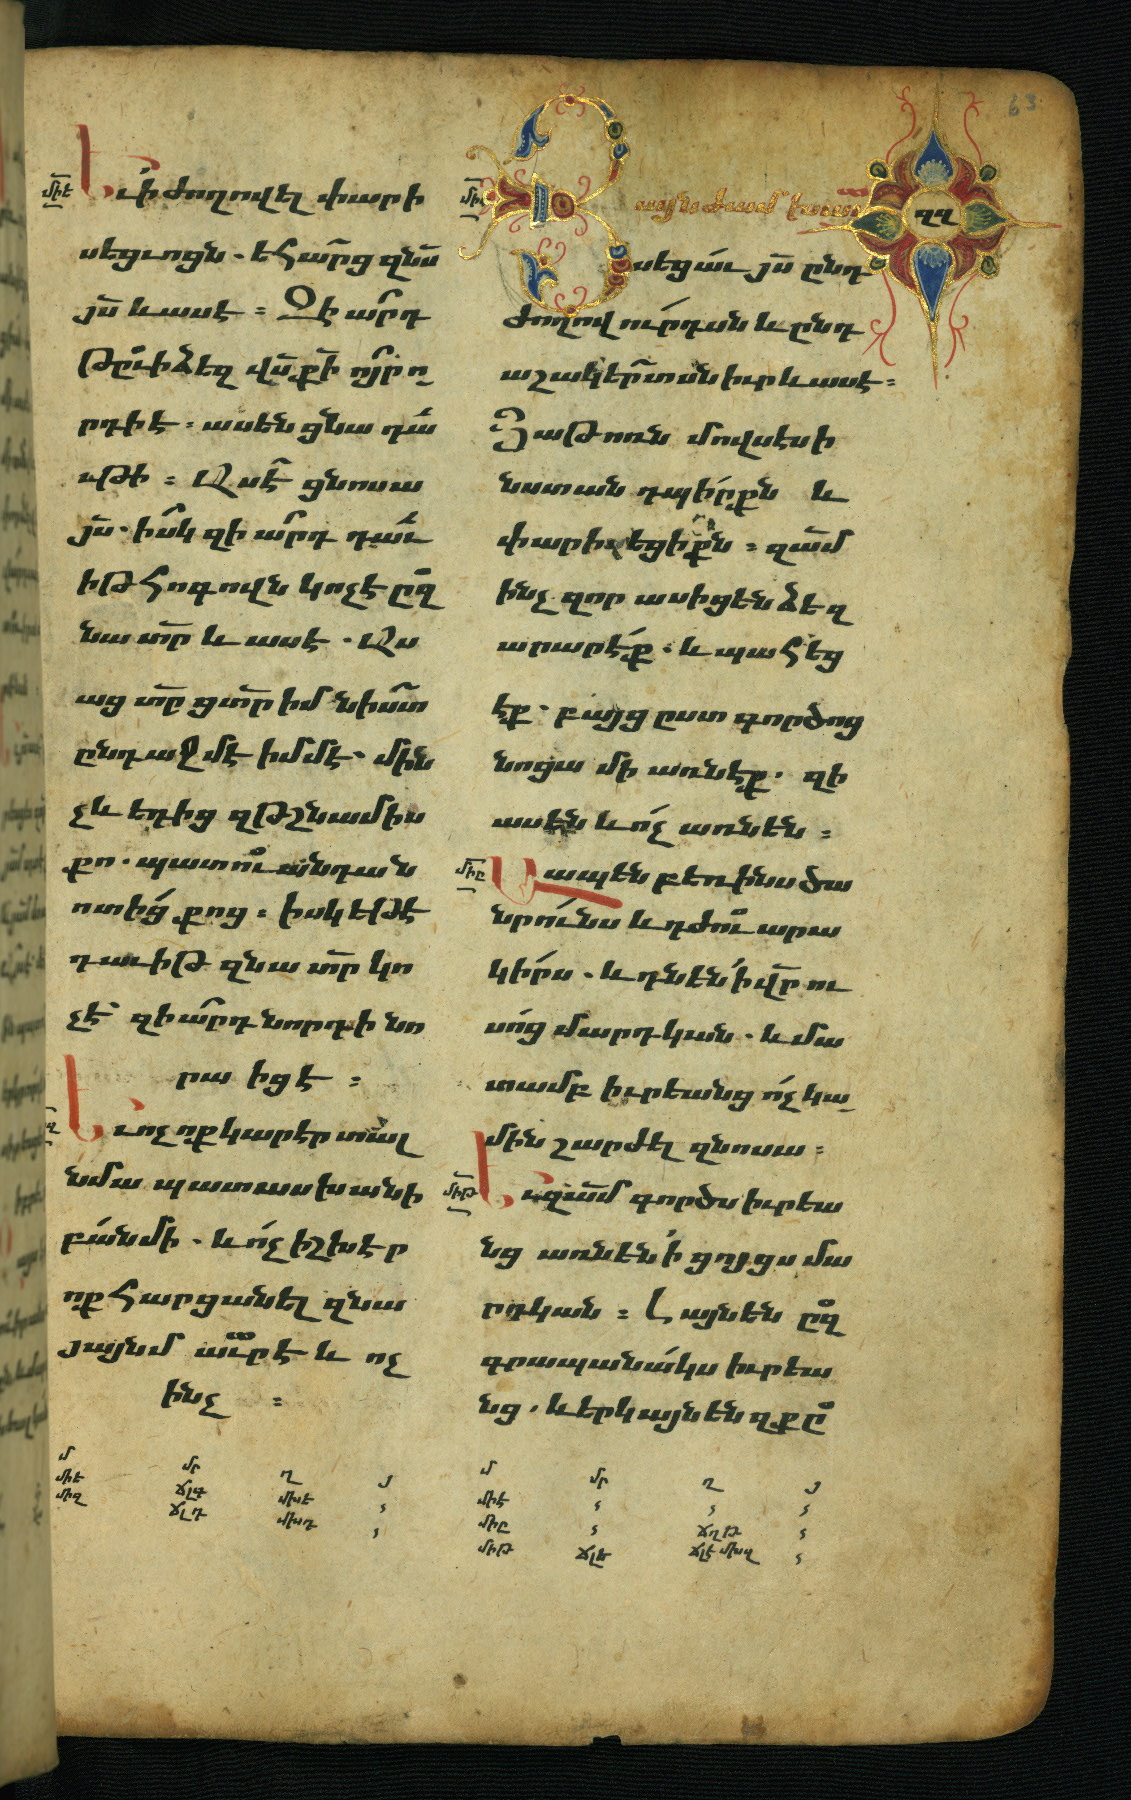 63
միե
Եւ ի ժողովել փարի
սեցւոցն . եհարց զնս̄
յս̄ և ասէ : Զի՞ արդ
թըւի ձեզ վս̄ քի̄ ո՞յր ո
րդի է . ասեն ցնա դա
ւթի : Ասէ ցնոսա
յս̄ . իսկ զի արդ դաւ
իթ հոգովն կոչէ ըզ
նա տր̄ և ասէ . Աս
աց տր̄ ցտր̄ իմ նիստ
ընդ աջմէ իմմէ . մին
չև եդից զթշնամիս
քո . պատուանդան
ոտից քոց : իսկ եթէ
դաւիթ զնա տր̄ կո
չէ զիարդ նորդի նո
րա իցէ :
Եւ ոչ ոք կարէր տալ
նմա պատասխանի
բանմի . և ոչ իշխէր
ոք հարցանել զնա
յայնմ աւրէ և ոչ
ինչ :
Յայնժամ
ղզ
սեցաւ յս̄ ընդ
ժողովուրդսն և ընդ
աշակերտսն իւր և ասէ :
Յաթոռն մովսէսի
նստան դպիրքն և
փարիսեցիքն : զամ
ինչ զոր ասիցեն ձեզ
արարէք . և պահեց
էք . բայց ըստ գործոց
նոցա մի առնէք . զի
ասեն և ոչ առնեն :
միը
Կապեն բեռինս ծա
նրունս և դժուարա
կիրս . և դնեն ի վր̄ ու
սոց մարդկան . և մա
տամբ իւրեանց ոչ կա
մին շարժել զնոսա :
միթ
Եւ զամ գործս իւրեա
նց առնեն ի ցոյցս մա
րդկան : Լայնեն ըզ
գրապանակս իւրեա
նց . և երկայնեն զքը
մ մր ղ յ
միե ճլգ միսե
միզ ճլդ միսդ
մ մր ղ յ
միէ
միը ճղթ
միթ ճլե ճլէ միսզ